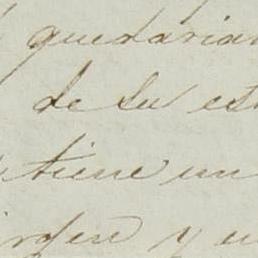 quedarian
de su est
tiene un
irgen y u